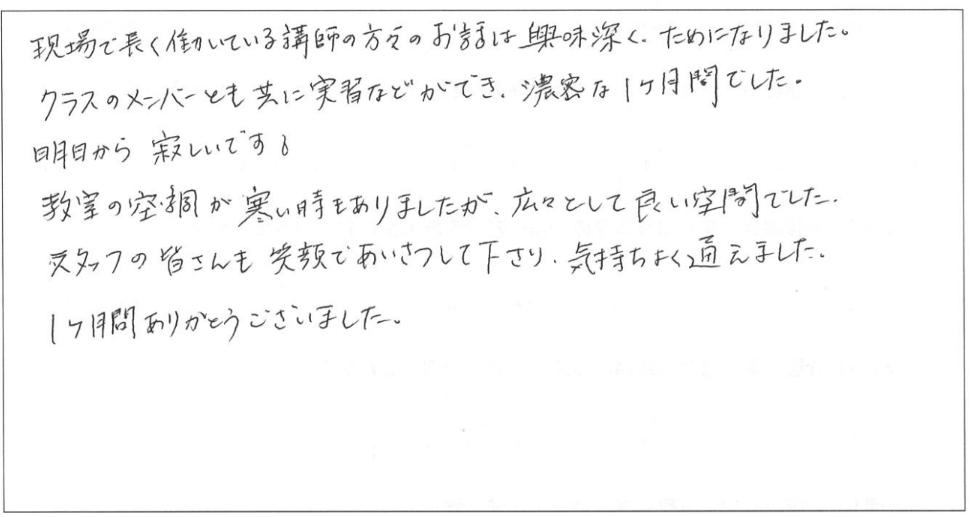 現場で長く働いている講師の方々のお話は興味深く、ためになりました。
クラスのメンバーとも共に実習などができ、濃密な1ヶ月間でした。
明日から寂しいです。
教室の空調が寒い時もありましたが、広々として良い空間でした。
スタッフの皆さんも笑顔であいさつして下さり、気持ちよく通えました。
1ヶ月間ありがとうございました。